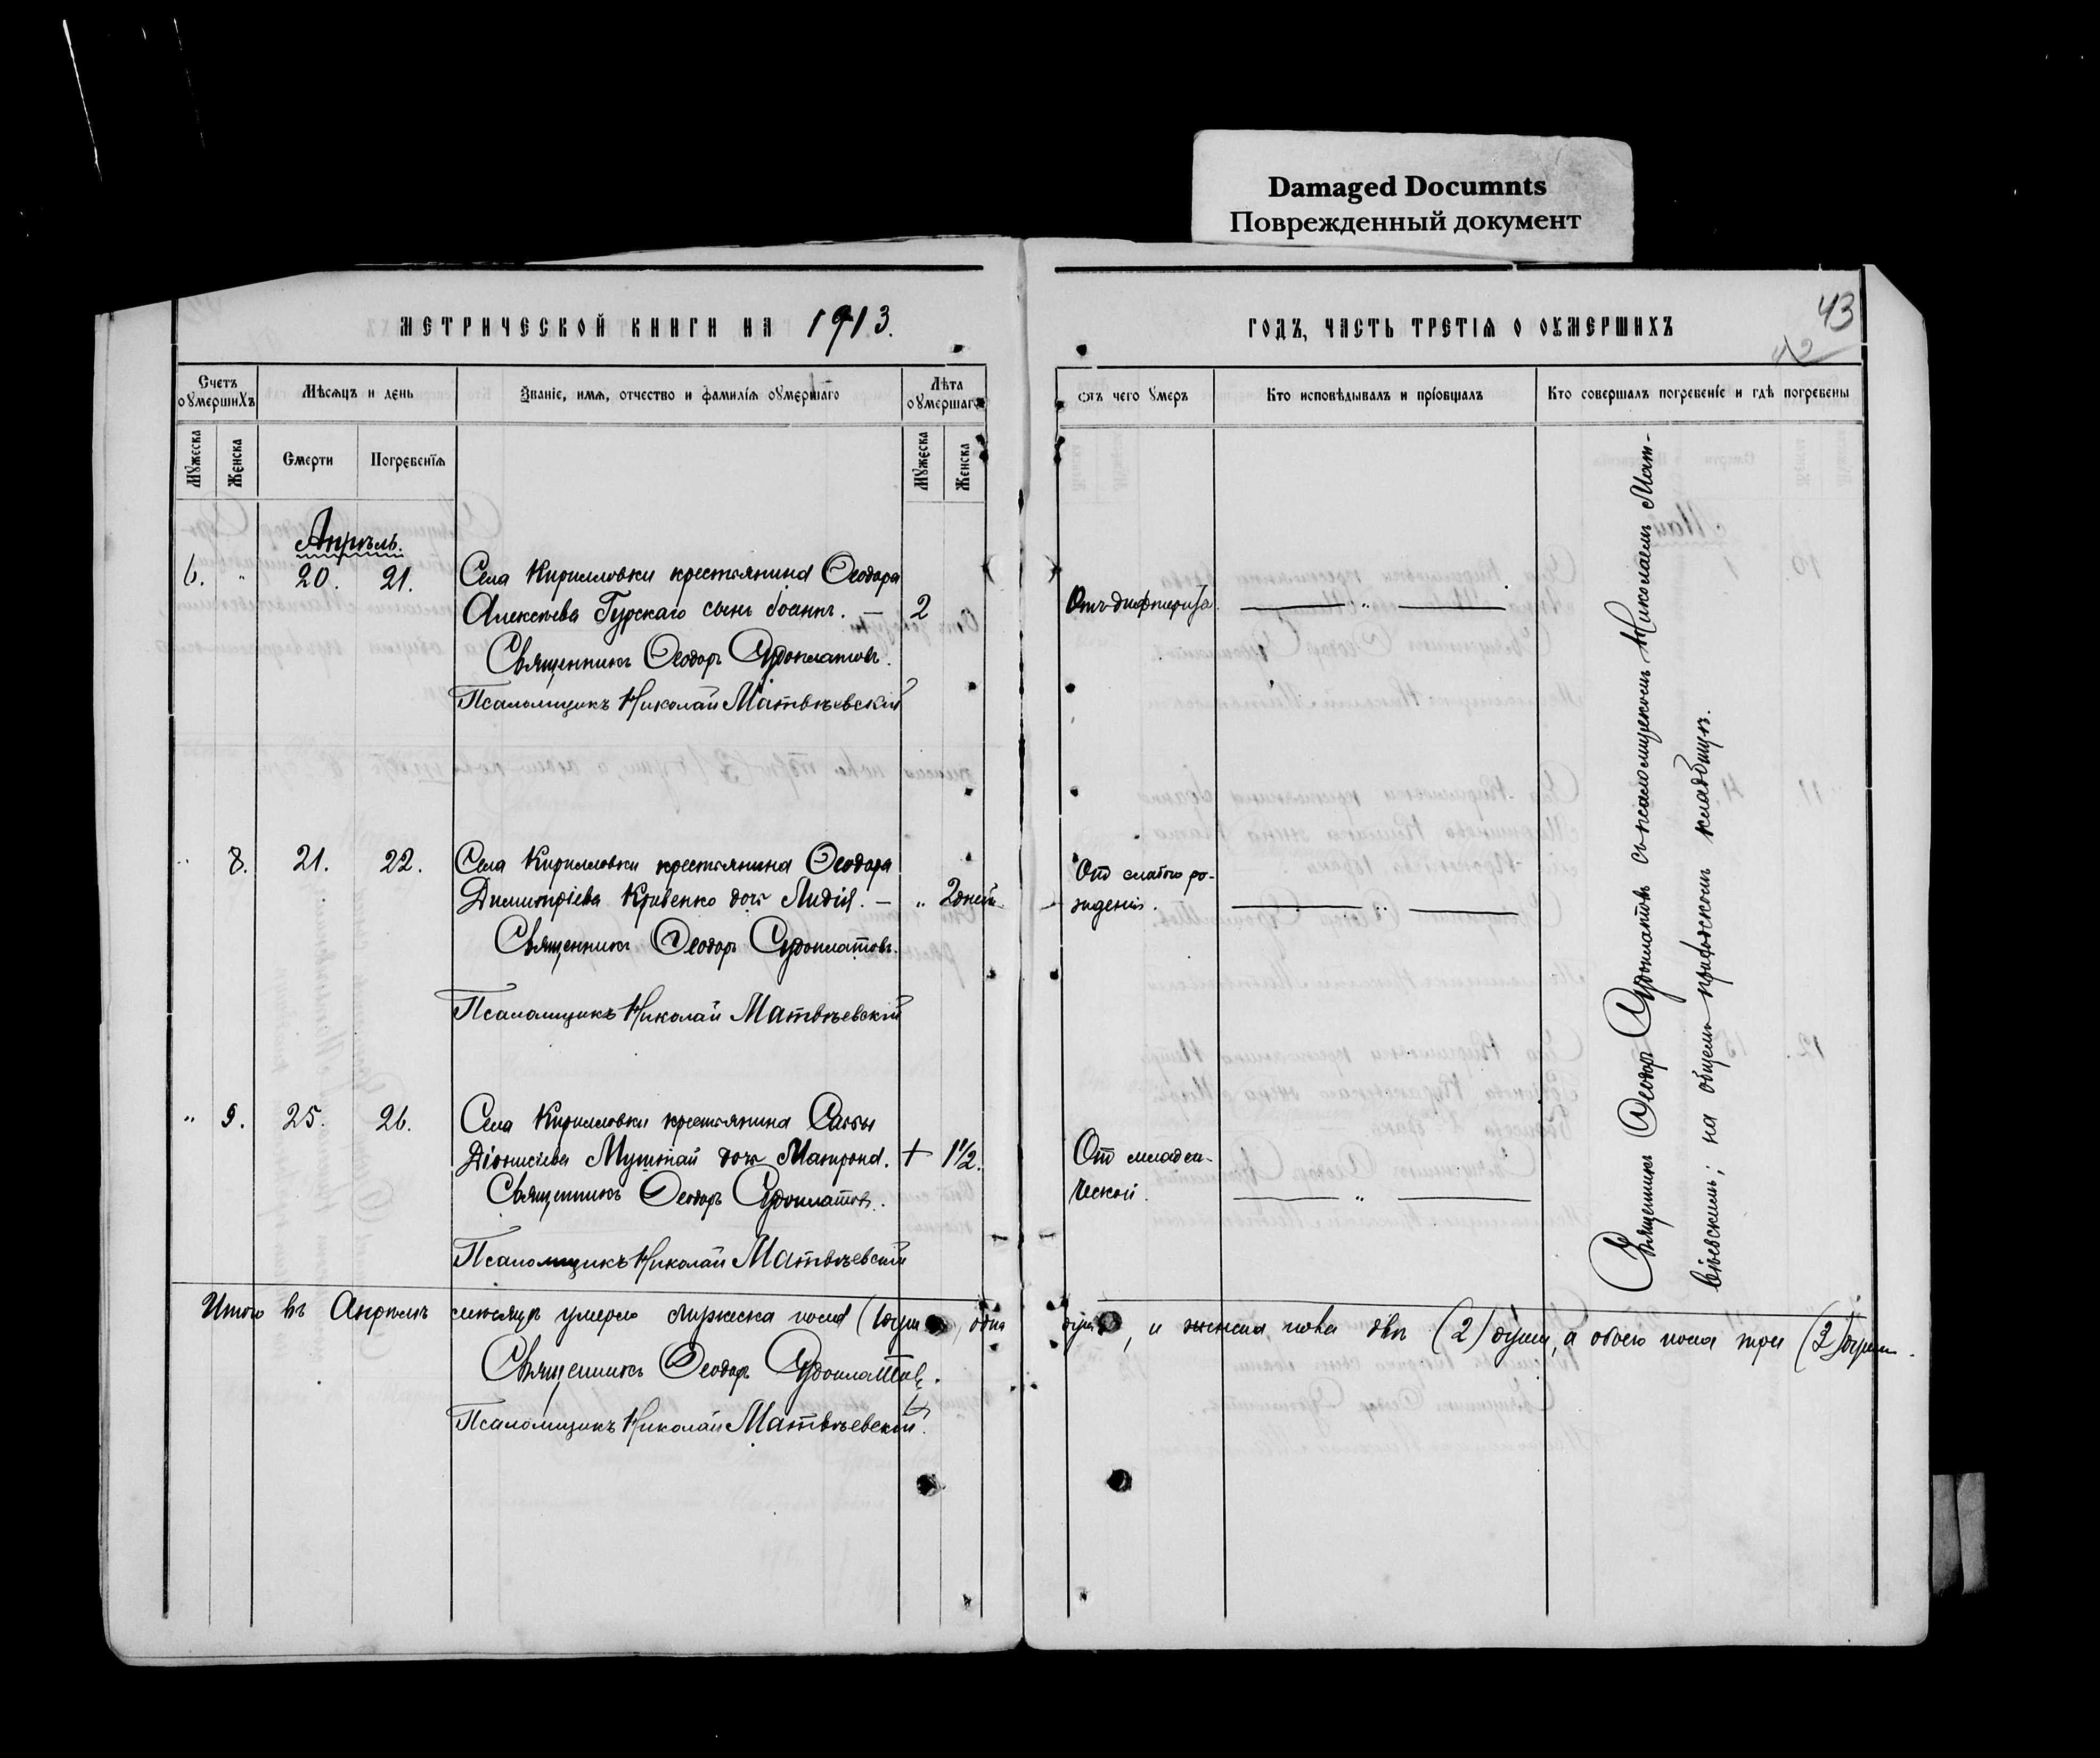 Damaged Documnts
Поврежденный документ
МЕТРИЧЕСКОЙ КНИГИ НА 1913.
ГОДЪ, ЧАСТЬ ТРЕТІЯ О ОУМЕРШИХЪ
43
42
Счетъ оумершихъ
Мѣсяцъ и день
Званіе, имя, отчество и фамилія оумершаго
Лѣта оумершаго
отъ чего Умеръ
Кто исповѣдывалъ и пріобщалъ
Кто совершалъ погребеніе и гдѣ погребены
Мужеска
Женска
Смерти
Погребенія
Мужеска
Женска
Апрѣль.
6. " 20. 21. Села Кирилловки крестьянина Ѳеодора
Алексѣева Гурскаго сынъ Іоаннъ. — 2 Отъ дифтерита. — " —
Священникъ Ѳеодоръ Судоплатовъ.
Псаломщикъ Николай Матвѣевскій
" 8. 21. 22. Села Кирилловки крестьянина Ѳеодора От слабаго ро-
Димитріева Кривенко дочь Лидія. — " 2 дней жденія. — " —
Священникъ Ѳеодоръ Судоплатовъ.
Псаломщикъ Николай Матвѣевскій
" 9. 25. 26. Села Кирилловки крестьянина Саввы
Діонисіева дочь Матрона. + 1½. От младен-
Священникъ Ѳеодоръ Судоплатовъ. ческой. — " —
Псаломщикъ Николай Матвѣевскій
Священникъ Ѳеодоръ Судоплатовъ съ псаломщикомъ Николаемъ Мат-
вѣевскимъ; на общемъ приходскомъ кладбищѣ.
Итого въ Апрѣлѣ мѣсяцѣ умерло мужеска пола (1) одна душа, и женска пола двѣ (2) души, а обоего пола три (3) души.
Священникъ Ѳеодоръ Судоплатовъ.
Псаломщикъ Николай Матвѣевскій.